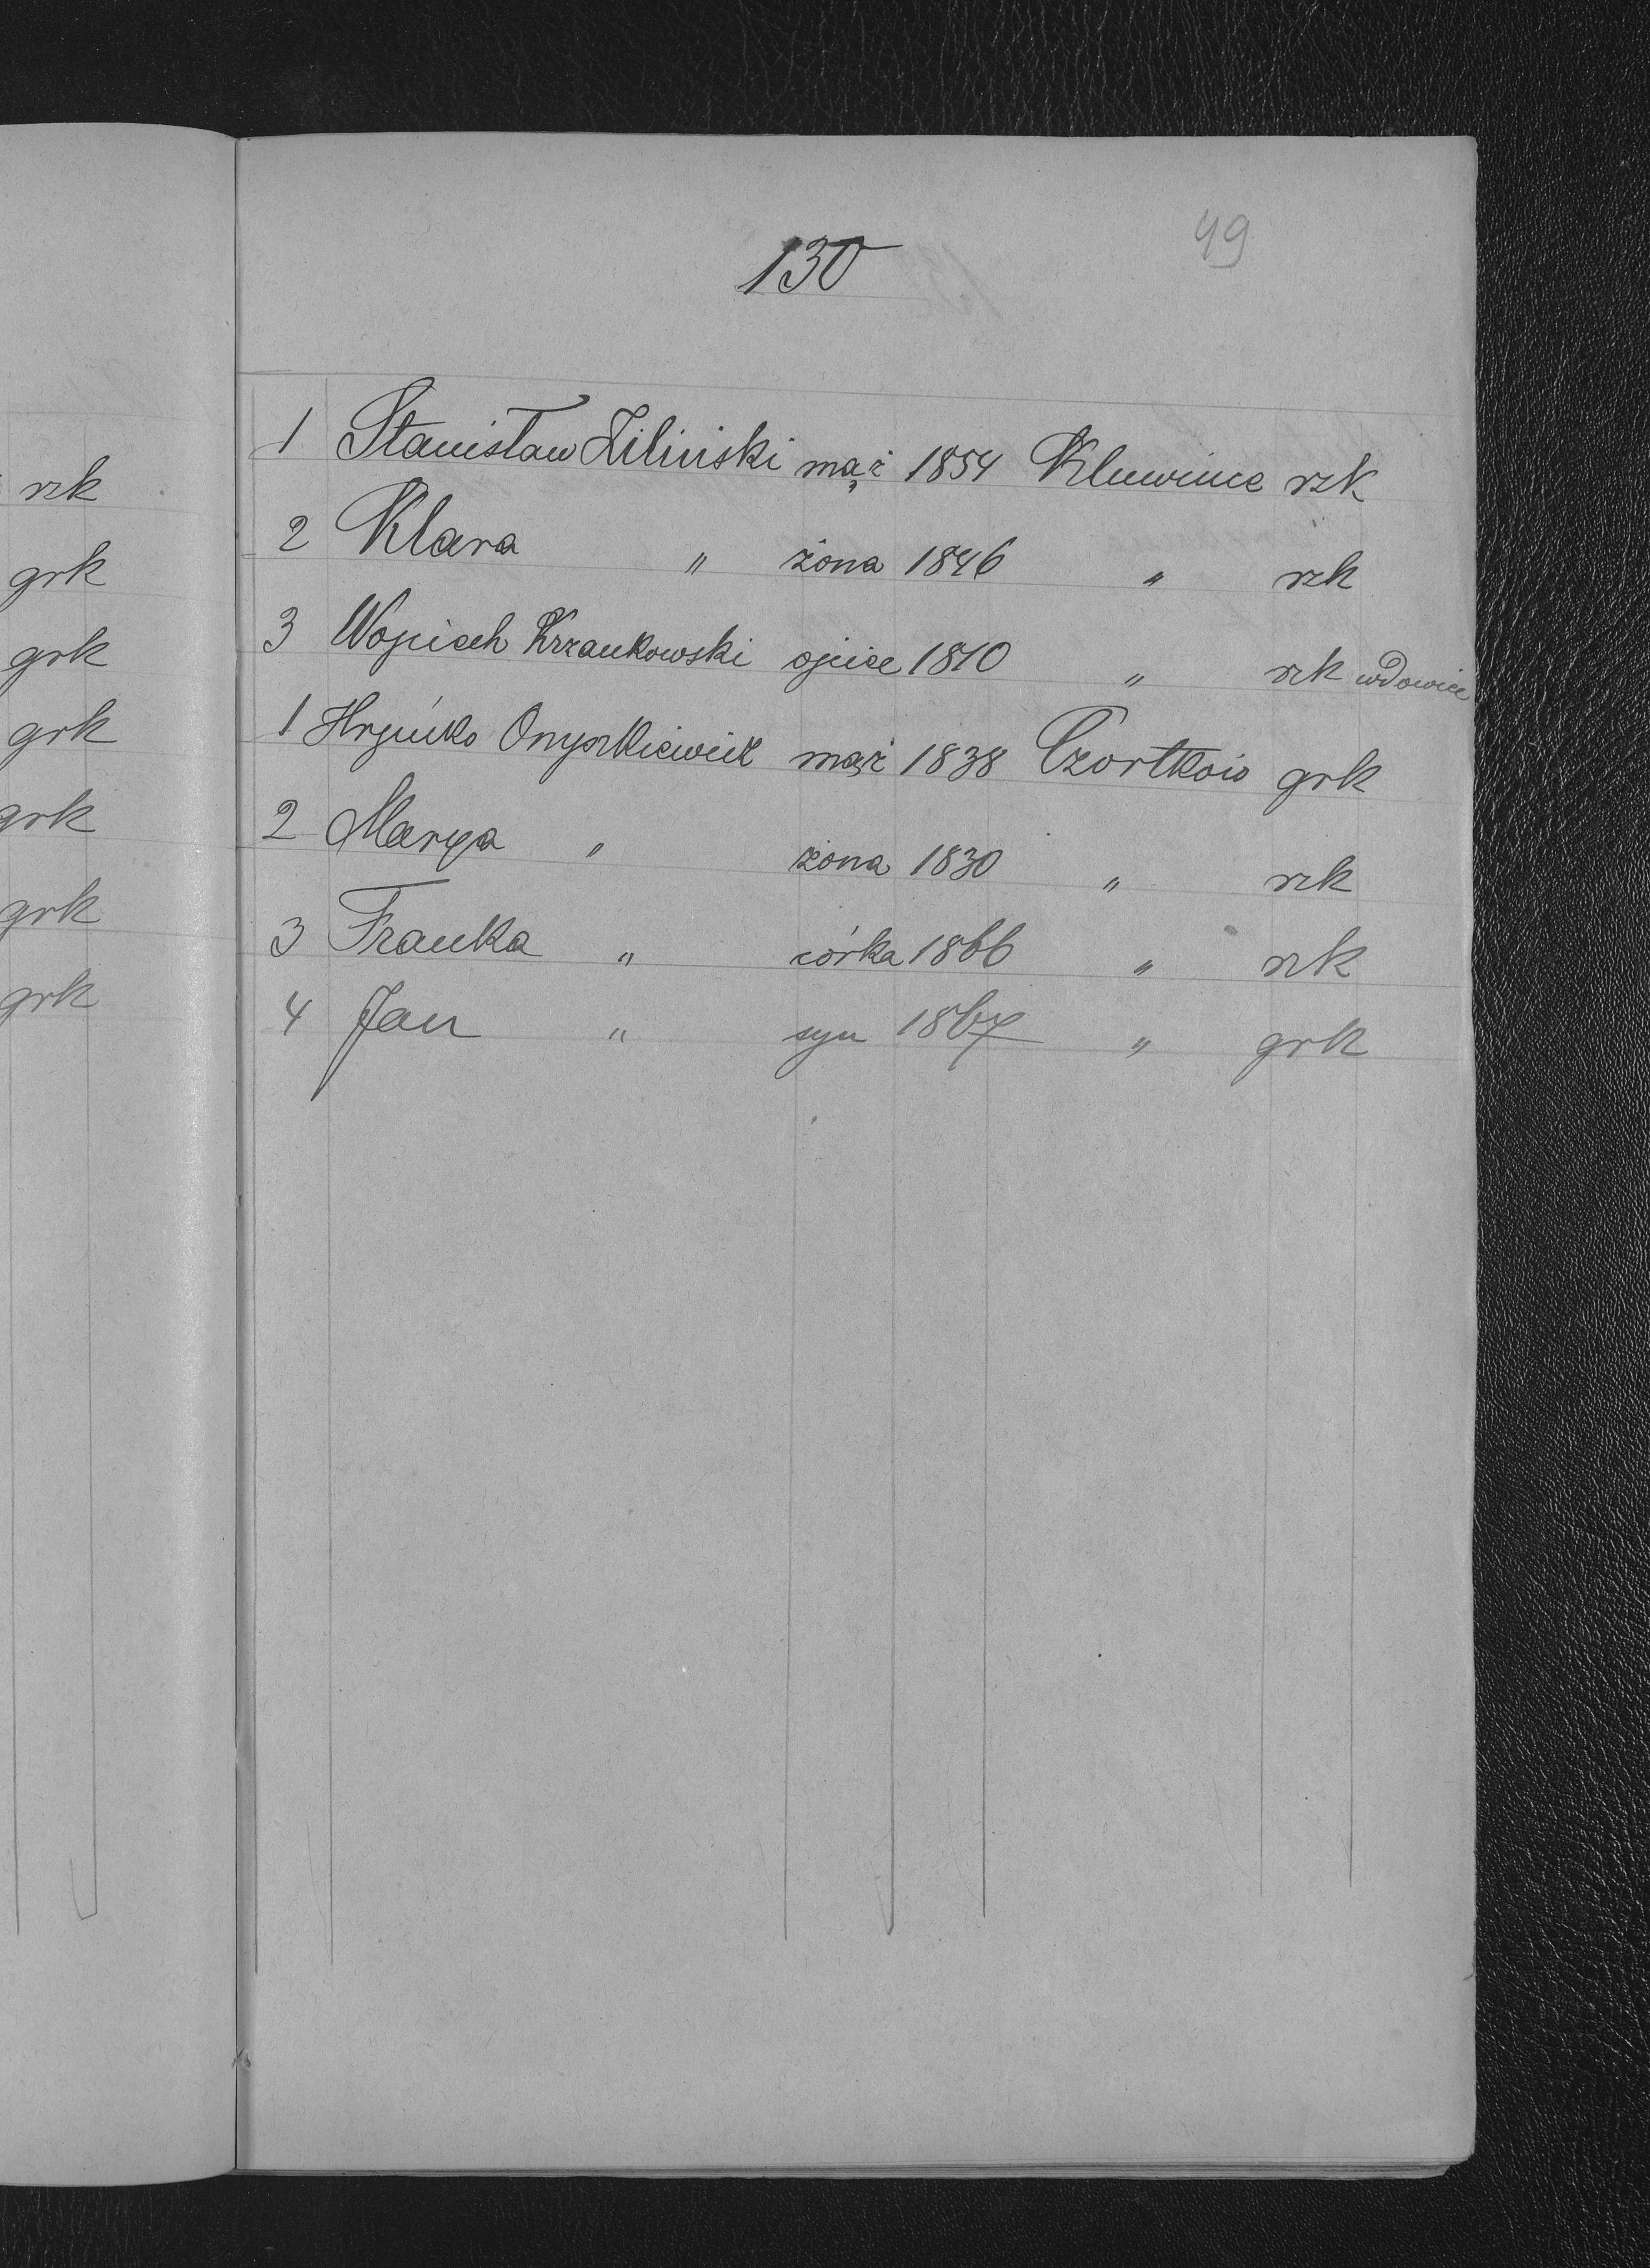 49
130
1 Stanisław Ziliński mąż 1854 Kluwince rzk
2 Klara " żona 1846 " rzk
3 Wojciech Krzankowski ojciec 1810 " rzk wdowiec
1 Hryńko Onyszkiewicz mąż 1838 Czortków grk
2 Marya " żona 1830 " rzk
3 Franka " córka 1866 " rzk
4 Jan " syn 1867 " grk
rzk
grk
grk
grk
grk
grk
grk